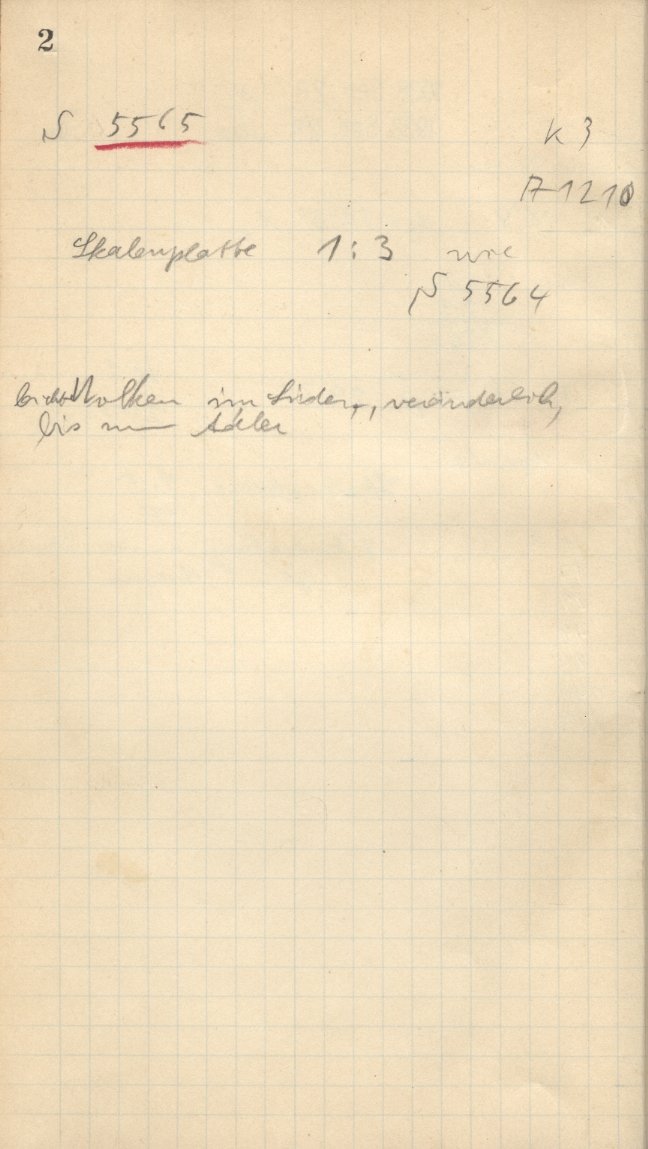 2
S 5565
K 3
A 1210
Skalenplatte 1:3 wie
S 5564
Wolken im Süden, veränderlich,
bis zum Adler